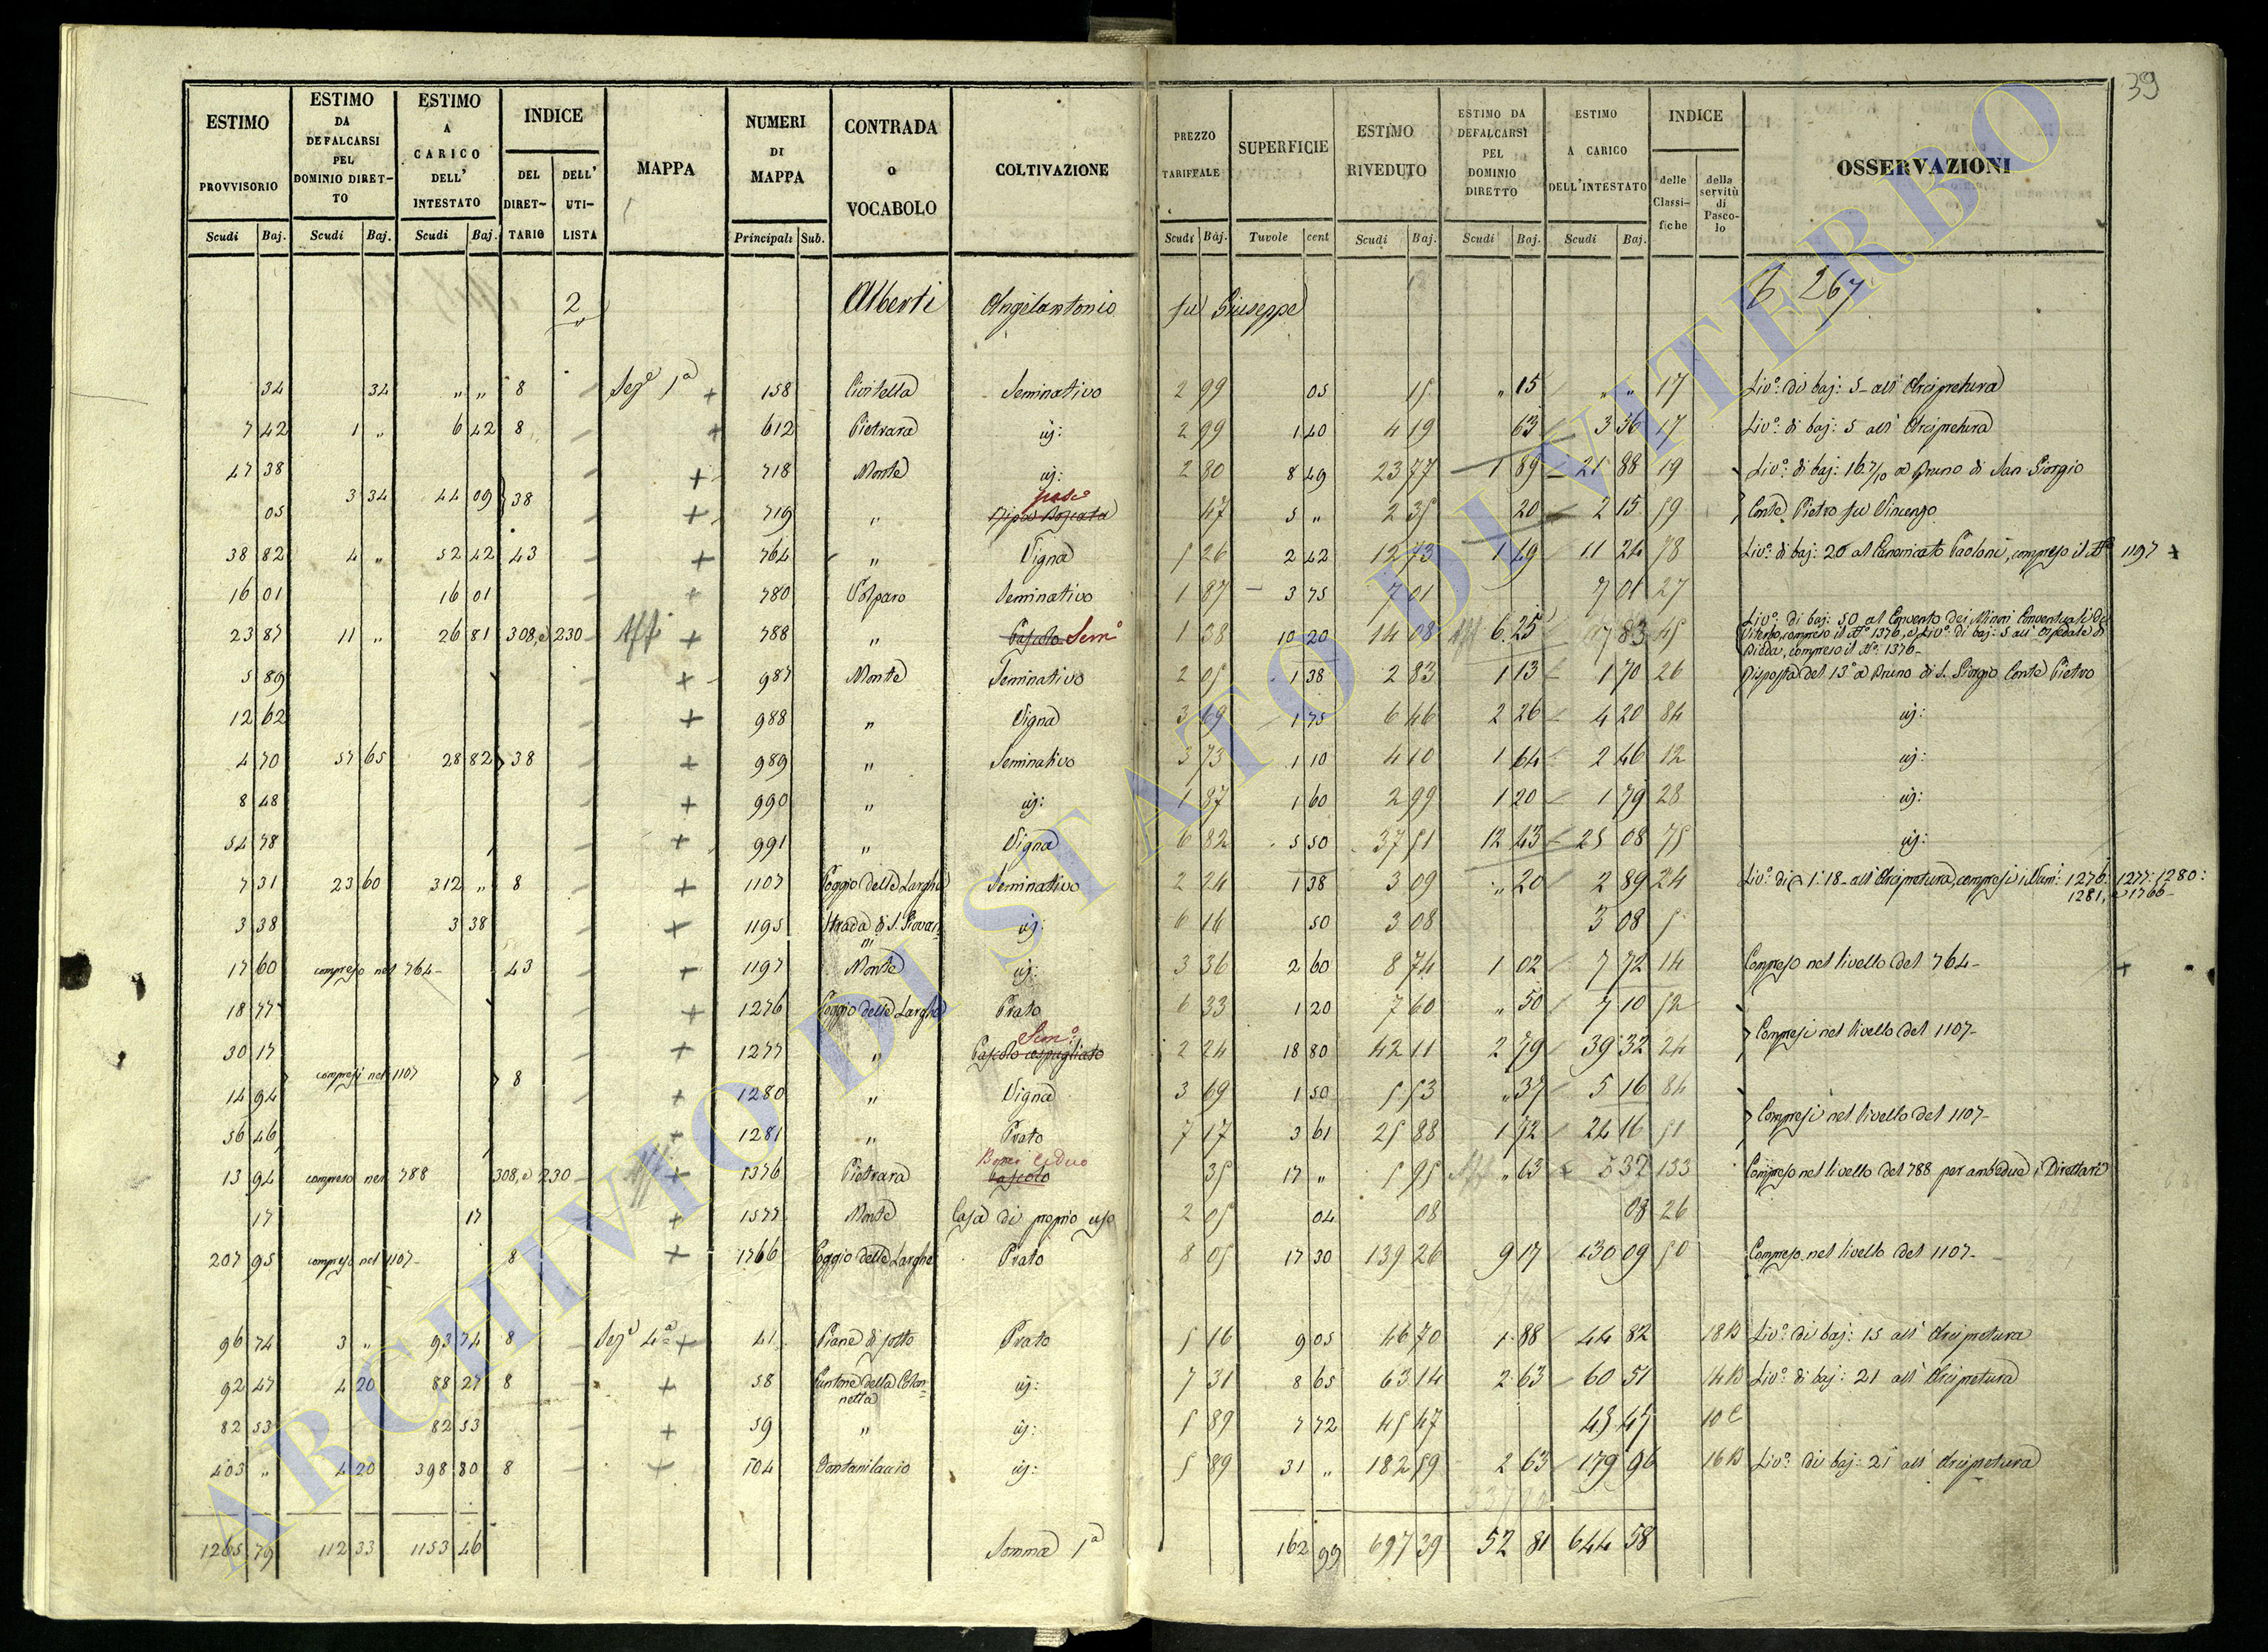 39
ESTIMO PROVVISORIO Scudi Baj.
ESTIMO DA DEFALCARSI PEL DOMINIO DIRETTO Scudi Baj.
ESTIMO A CARICO DELL' INTESTATO Scudi Baj.
INDICE DEL DIRETTARIO DELL' UTILISTA
MAPPA
NUMERI DI MAPPA Principali Sub.
CONTRADA o VOCABOLO
COLTIVAZIONE
PREZZO TARIFFALE Scudi Baj.
SUPERFICIE Tavole cent
ESTIMO RIVEDUTO Scudi Baj.
ESTIMO DA DEFALCARSI PEL DOMINIO DIRETTO Scudi Baj.
ESTIMO A CARICO DELL'INTESTATO Scudi Baj.
INDICE delle Classifiche della servitù di Pascolo
OSSERVAZIONI
2 Alberti Angelantonio fu Giuseppe 267
34 34 " " 8 Sez.e 1a + 158 Civitella Seminativo 2 99 05 15 " 15 " " 17 Liv.o di baj: 5 all' Arcipretura
7 42 1 " 6 42 8 + 612 Pietrara id: 2 99 1 40 4 19 63 3 56 17 Liv.o di baj: 5 all' Arcipretura
47 38 + 718 Monte id: 2 80 8 49 23 77 1 89 21 88 19 Liv.o di baj: 16 7/10 a Bruno di San Giorgio
05 3 34 44 09 38 + 719 " Ripa Boscata pasc.o 47 5 " 2 35 20 2 15 59 Conte Pietro fu Vincenzo
38 82 4 " 52 42 43 + 764 " Vigna 5 26 2 42 12 73 1 49 11 24 78 Liv.o di baj: 20 al Canonicato Paoloni, compreso il N.o 1197 +
16 01 16 01 + 780 Polparo Seminativo 1 87 3 75 7 01 7 01 27
23 87 11 " 26 81 308, e 230 Aff + 788 " Pascolo Sem.o 1 38 10 20 14 08 Aff 6 25 7 83 45 Liv.o di baj: 50 al Convento dei Minori Conventuali di
Viterbo, compreso il N.o 1376, e Liv.o di baj: 5 all' Ospedale di
Bieda, compreso il N.o 1376
5 89 + 987 Monte Seminativo 2 05 1 38 2 83 1 13 1 70 26 Risposta del 13.o a Bruno di S. Giorgio Conte Pietro
12 62 + 988 " Vigna 3 69 1 75 6 46 2 26 4 20 84 id:
4 70 57 65 28 82 38 + 989 " Seminativo 3 73 1 10 4 10 1 64 2 46 12 id:
8 48 + 990 " id: 1 87 1 60 2 99 1 20 1 79 28 id:
54 78 + 991 " Vigna 6 82 5 50 37 51 12 43 25 08 75 id:
7 31 23 60 312 " 8 + 1107 Poggio delle Larghe Seminativo 2 24 1 38 3 09 " 20 2 89 24 Liv.o di 1:18 all' Arcipretura, compresi i Num: 1276: 1277: 1280:
1281, e 1766
3 38 3 38 + 1195 Strada di S. Giovan.ni id: 6 16 50 3 08 3 08 5
17 60 compreso nel 764 43 + 1197 Monte id: 3 36 2 60 8 74 1 02 7 72 14 Compreso nel livello del 764 +
18 77 + 1276 Poggio delle Larghe Prato 6 33 1 20 7 60 " 50 7 10 52
30 17 + 1277 " Pascolo cespugliato Sem.o 2 24 18 80 42 11 2 79 39 32 24 Compresi nel livello del 1107
14 94 compresi nel 1107 8 + 1280 " Vigna 3 69 1 50 5 53 " 37 5 16 84
56 46 + 1281 " Prato 7 17 3 61 25 88 1 72 24 16 51 Compresi nel livello del 1107
13 94 compreso nel 788 308, e 230 Aff + 1376 Pietrara Pascolo Bosco Ceduo 35 17 " 5 95 Aff " 63 5 32 133 Compreso nel livello del 788 per ambedue i Direttarii
17 17 + 1577 Monte Casa di proprio uso 2 05 04 08 08 26
207 95 compreso nel 1107 8 + 1766 Poggio delle Larghe Prato 8 05 17 30 139 26 9 17 130 09 50 Compreso nel livello del 1107
96 74 3 " 93 74 8 Sez.e 4a + 41 Piane di sotto Prato 5 16 9 05 46 70 1 88 44 82 18 B Liv.o di baj: 15 all' Arcipretura
92 47 4 20 88 27 8 + 58 Cantone della Colonnetta id: 7 31 8 65 63 14 2 63 60 51 14 B Liv.o di baj: 21 all' Arcipretura
82 53 82 53 + 59 " id: 5 89 7 72 45 47 45 47 10 C
403 " 4 20 398 80 8 104 Fontanilaccio id: 5 89 31 " 182 59 2 63 179 96 16 B Liv.o di baj: 21 all' Arcipretura
1265 79 112 33 1153 46 Somma 1a 162 99 697 39 52 81 644 58
ARCHIVIO DI STATO DI VITERBO